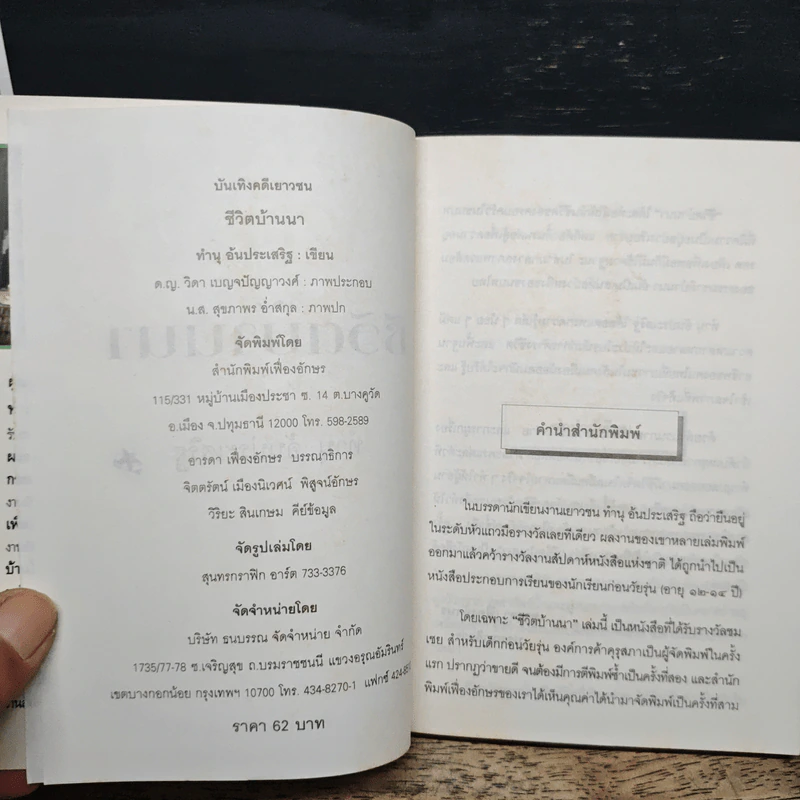 บันเทิงคดีเยาวชน
ชีวิตบ้านนา
ทำนุ อันประเสริฐ : เขียน
ด.ญ. วิดา เบญจปัญญาวงศ์ : ภาพประกอบ
น.ส. สุขภาพร อ่ำสกุล : ภาพปก
จัดพิมพ์โดย
สำนักพิมพ์เฟื่องอักษร
115/331 หมู่บ้านเมืองประชา ซ. 14 ต.บางคูวัด
อ.เมือง จ.ปทุมธานี 12000 โทร. 598-2589
อารดา เฟื่องอักษร บรรณาธิการ
จิตตรัตน์ เมืองนิเวศน์ พิสูจน์อักษร
วิริยะ สินเกษม คีย์ข้อมูล
จัดรูปเล่มโดย
สุนทรกราฟิก อาร์ต 733-3376
จัดจำหน่ายโดย
บริษัท ธนบรรณ จัดจำหน่าย จำกัด
1735/77-78 ซ.เจริญสุข ถ.บรมราชชนนี แขวงอรุณอัมรินทร์
เขตบางกอกน้อย กรุงเทพฯ 10700 โทร. 434-8270-1 แฟกซ์
ราคา 62 บาท
คำนำสำนักพิมพ์
ในบรรดานักเขียนงานเยาวชน ทำนุ อันประเสริฐ ถือว่ายืนอยู่
ในระดับหัวแถวมือรางวัลเลยทีเดียว ผลงานของเขาหลายเล่มพิมพ์
ออกมาแล้วคว้ารางวัลงานสัปดาห์หนังสือแห่งชาติ ได้ถูกนำไปเป็น
หนังสือประกอบการเรียนของนักเรียนก่อนวัยรุ่น (อายุ ๑๒-๑๔ ปี)
โดยเฉพาะ "ชีวิตบ้านนา" เล่มนี้ เป็นหนังสือที่ได้รับรางวัลชม
เชย สำหรับเด็กก่อนวัยรุ่น องค์การค้าคุรุสภาเป็นผู้จัดพิมพ์ในครั้ง
แรก ปรากฏว่าขายดี จนต้องมีการตีพิมพ์ซ้ำเป็นครั้งที่สอง และสำนัก
พิมพ์เฟื่องอักษรของเราได้เห็นคุณค่าได้นำมาจัดพิมพ์เป็นครั้งที่สาม